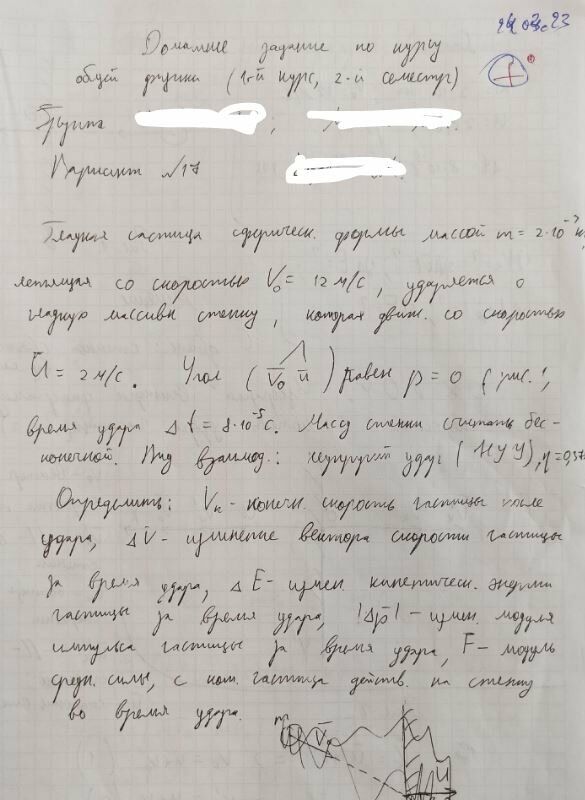 24.03.23
Домашнее задание по курсу
общей физики (1-й курс, 2-й семестр)
Группа
Вариант №17
Гладкая частица сферическ. формы массой m = 2·10⁻³ к
летящая со скоростью V₀ = 12 м/с, ударяется о
гладкую массивн стенку, которая движ. со скоростью
Ū = 2 м/с. Угол (V̄₀ ū) равен β = 0 (рис.),
время удара Δt = 8·10⁻⁵ с. Массу стенки считать бес-
конечной. Вид взаимод.: неупругий удар (НУУ), η = 0,5
Определить: Vк - конечн. скорость частицы после
удара, ΔV̄ - изменение вектора скорости частицы
за время удара, ΔE - измен. кинетическ. энергии
частицы за время удара, |Δp̄| - измен. модуля
импульса частицы за время удара, F - модуль
средн. силы, с кот. частица действ. на стенку
во время удара.
m V̄₀
Ū